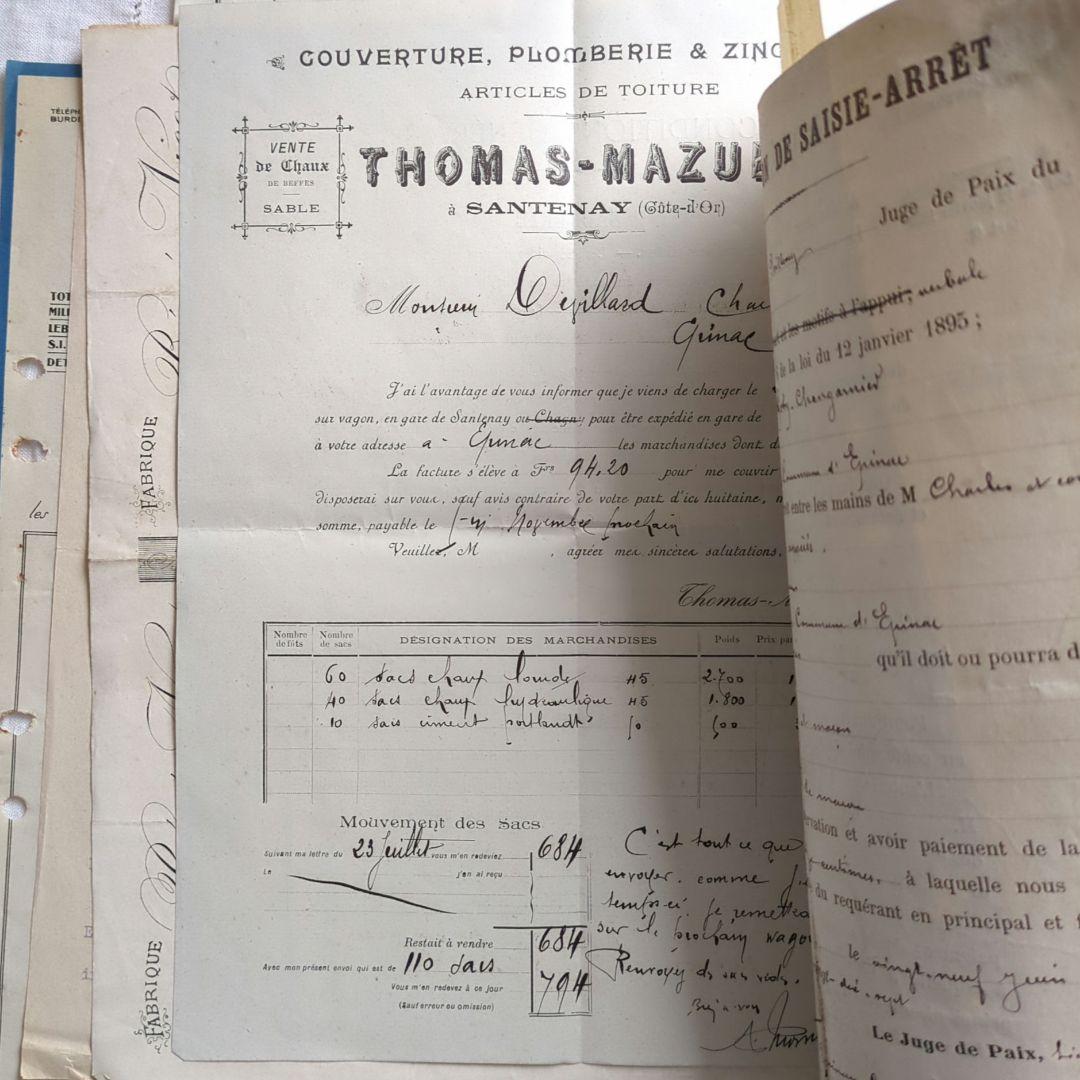 COUVERTURE, PLOMBERIE & ZING
ARTICLES DE TOITURE
VENTE
de Chaux
DE BEFFES
SABLE
THOMAS-MAZUE
à SANTENAY (Côte-d'Or)
Monsieur
Epinac
J'ai l'avantage de vous informer que je viens de charger le
sur vagon, en gare de Santenay ou Chagny pour être expédié en gare de
à votre adresse a Epinac les marchandises dont d
La facture s'élève à Frs 94,20 pour me couvrir
disposerai sur vous, sauf avis contraire de votre part d'ici huitaine,
somme, payable le Novembre prochain
Veuillez, M , agréer mes sincères salutations,
Thomas-
Nombre de fûts Nombre de sacs DÉSIGNATION DES MARCHANDISES Poids Prix pa
60 sacs chaux lourde 45 2.700
40 sacs chaux hydraulique 45 1.800
10 sacs ciment portlandt 50 500
Mouvement des Sacs
Suivant ma lettre du 23 Juillet vous m'en redeviez 684
Le j'en ai reçu
Restait à vendre 684
Avec mon présent envoi qui est de 110 sacs
Vous m'en redevez à ce jour 794
(Sauf erreur ou omission)
C'est tout ce que
envoyer. comme
je remettra
sur le prochain wago
Renvoyez
TÉLÉPH
BURE
TOT
MIL
LEB
S.I.
DET
les
FABRIQUE
FABRIQUE
DE SAISIE-ARRÊT
Juge de Paix du
et les motifs à l'appui; verbale
de la loi du 12 janvier 1895;
Changarnier
Commune d'Epinac
entre les mains de M Charles et
Commune d'Epinac
qu'il doit ou pourra d
de macon
de macon
rvation et avoir paiement de la
centimes, à laquelle nous
du requérant en principal et f
le vingt-neuf juin
dix-sept
Le Juge de Paix,